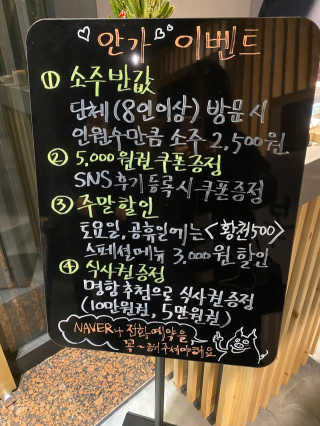 안가 이벤트
① 소주 반값
단체(8인이상) 방문 시
인원수만큼 소주 2,500원
② 5,000원권 쿠폰증정
SNS후기등록시 쿠폰증정
③ 주말할인
토요일, 공휴일에는 <황천500>
스페셜메뉴 3,000원 할인
④ 식사권증정
명함추첨으로 식사권 증정
(10만원권, 5만원권)
NAVER나 전화예약을
꼭~ 해주셔야해요